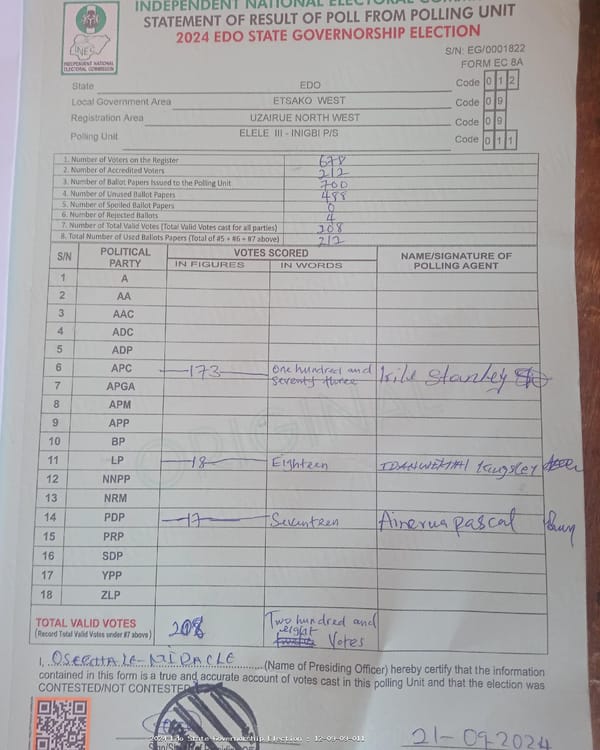 INDEPENDENT NATIONAL ELECTORAL COMM
STATEMENT OF RESULT OF POLL FROM POLLING UNIT
2024 EDO STATE GOVERNORSHIP ELECTION
INEC
INDEPENDENT NATIONAL
ELECTORAL COMMISSION
S/N: EG/0001822
FORM EC 8A
State EDO Code 0 1 2
Local Government Area ETSAKO WEST Code 0 9
Registration Area UZAIRUE NORTH WEST Code 0 9
Polling Unit ELELE III - INIGBI P/S Code 0 1 1
1. Number of Voters on the Register 678
2. Number of Accredited Voters 212
3. Number of Ballot Papers Issued to the Polling Unit 700
4. Number of Unused Ballot Papers 488
5. Number of Spoiled Ballot Papers 0
6. Number of Rejected Ballots 4
7. Number of Total Valid Votes (Total Valid Votes cast for all parties) 208
8. Total Number of Used Ballots Papers (Total of #5 + #6 + #7 above) 212
S/N POLITICAL PARTY VOTES SCORED NAME/SIGNATURE OF POLLING AGENT
IN FIGURES IN WORDS
1 A
2 AA
3 AAC
4 ADC
5 ADP
6 APC 173 One hundred and seventy three Stanley
7 APGA
8 APM
9 APP
10 BP
11 LP 18 Eighteen Kingsley
12 NNPP
13 NRM
14 PDP 17 Seventeen pascal
15 PRP
16 SDP
17 YPP
18 ZLP
ORIGINAL
TOTAL VALID VOTES 208 Two hundred and eight Votes
(Record Total Valid Votes under #7 above)
I, MIRACLE (Name of Presiding Officer) hereby certify that the information
contained in this form is a true and accurate account of votes cast in this polling Unit and that the election was
CONTESTED/NOT CONTESTED
21-09-2024
2024 Edo State Governorship Election - 12-09-09-011